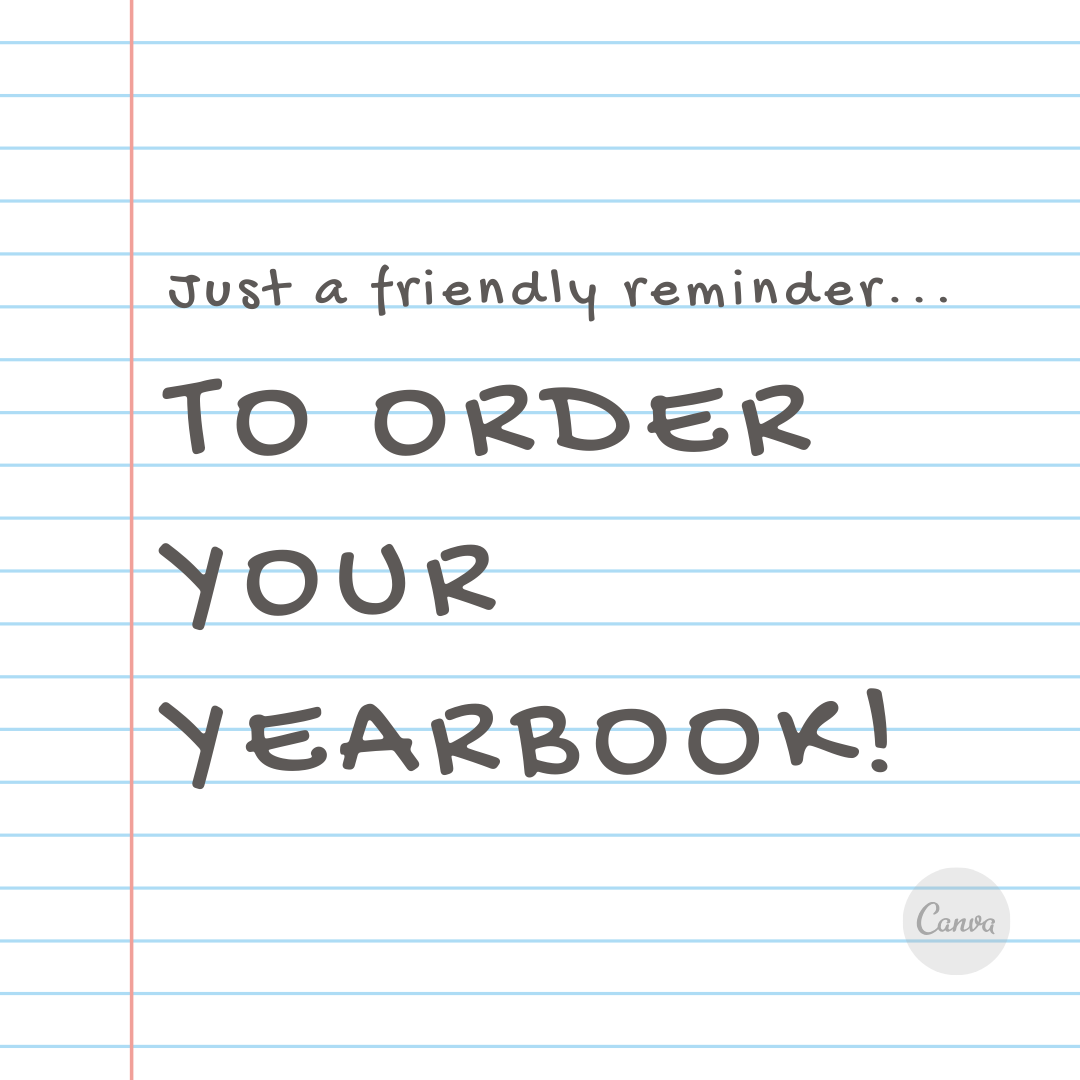 Just a friendly reminder...
TO ORDER
YOUR
YEARBOOK!
Canva